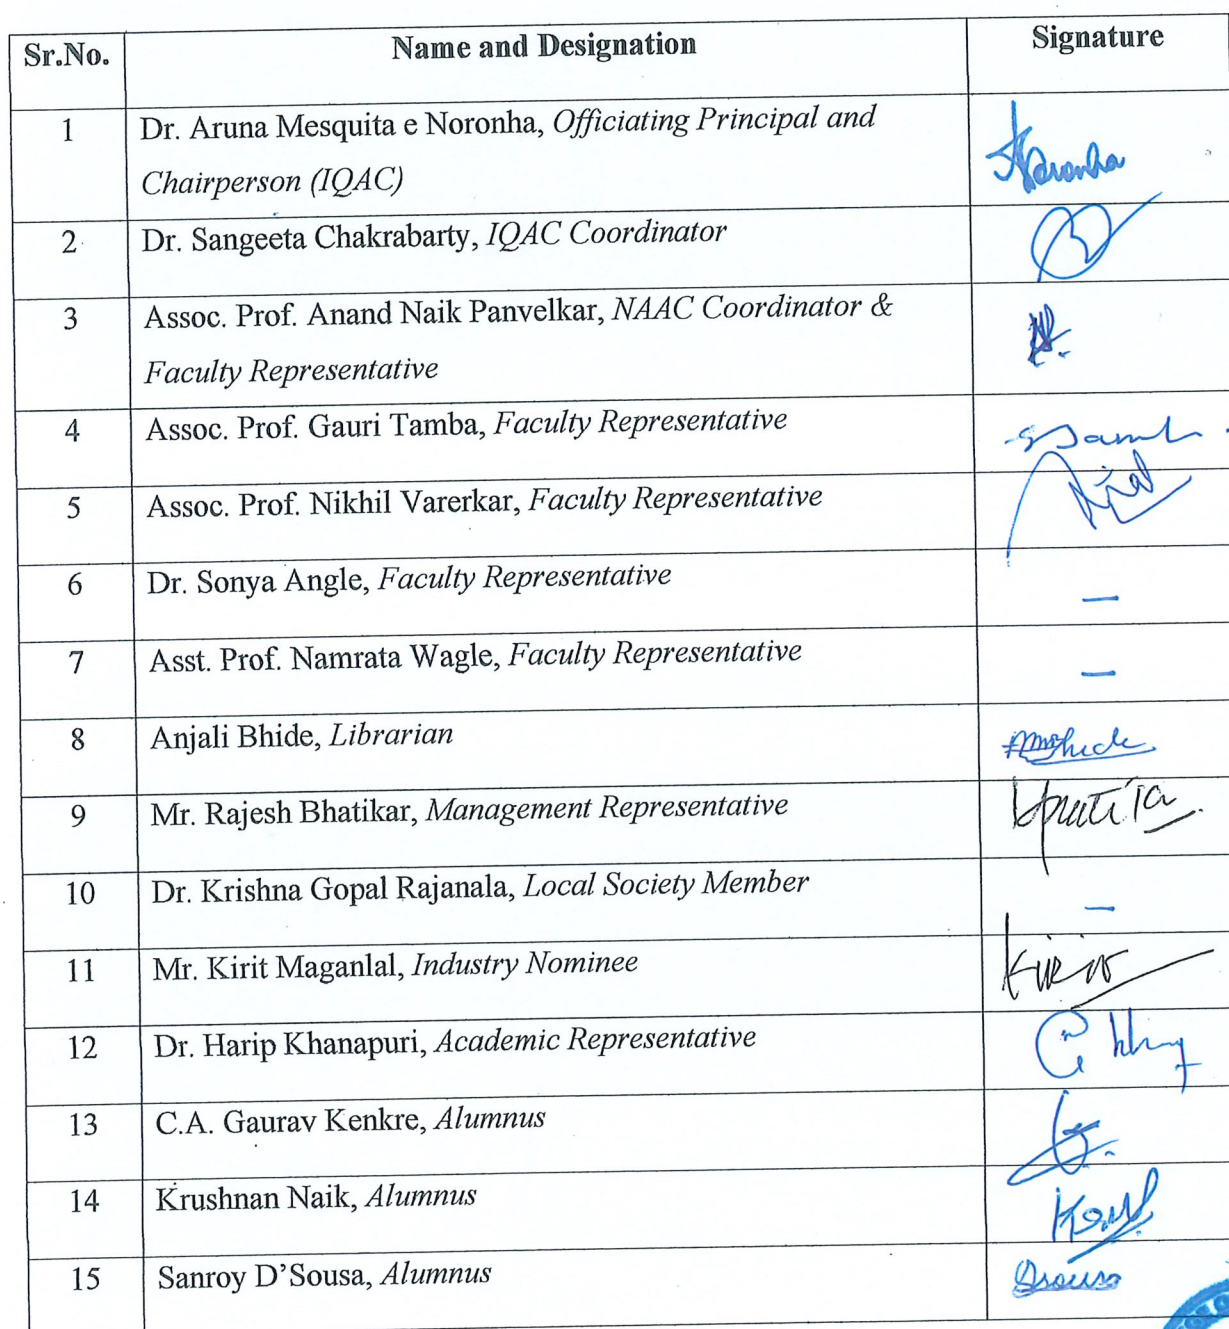 Sr.No. Name and Designation Signature
1 Dr. Aruna Mesquita e Noronha, Officiating Principal and
Chairperson (IQAC) Noronha
2 Dr. Sangeeta Chakrabarty, IQAC Coordinator
3 Assoc. Prof. Anand Naik Panvelkar, NAAC Coordinator &
Faculty Representative
4 Assoc. Prof. Gauri Tamba, Faculty Representative
5 Assoc. Prof. Nikhil Varerkar, Faculty Representative
6 Dr. Sonya Angle, Faculty Representative —
7 Asst. Prof. Namrata Wagle, Faculty Representative —
8 Anjali Bhide, Librarian
9 Mr. Rajesh Bhatikar, Management Representative
10 Dr. Krishna Gopal Rajanala, Local Society Member —
11 Mr. Kirit Maganlal, Industry Nominee
12 Dr. Harip Khanapuri, Academic Representative
13 C.A. Gaurav Kenkre, Alumnus
14 Krushnan Naik, Alumnus
15 Sanroy D'Sousa, Alumnus Dsousa